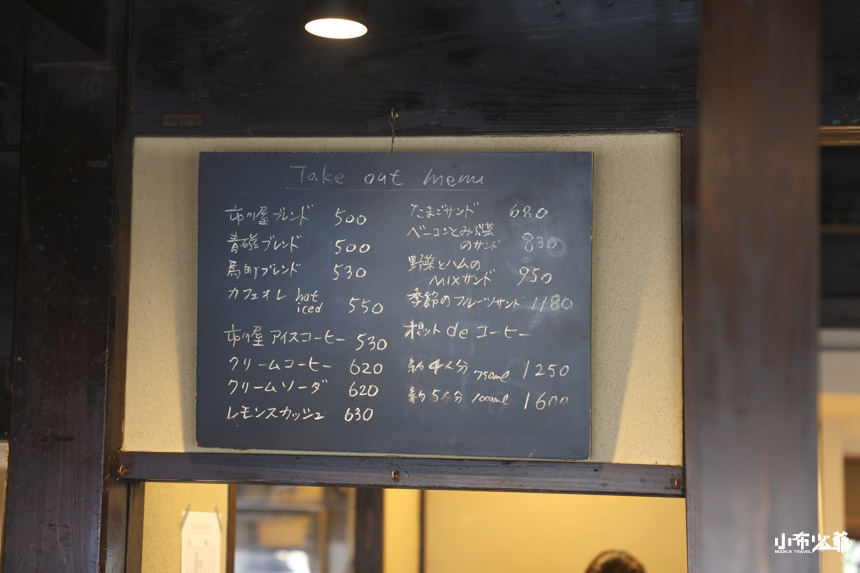 Take out menu
市川屋ブレンド 500
青磁ブレンド 500
馬町ブレンド 530
カフェオレ hot iced 550
市川屋 アイスコーヒー 530
クリームコーヒー 620
クリームソーダ 620
レモンスカッシュ 630
たまごサンド 680
ベーコンと
のサンド 830
野菜とハムの
MIXサンド 950
季節のフルーツサンド 1180
ポットdeコーヒー
約4人分 750ml 1250
約5人分 1000ml 1600
小布少爺